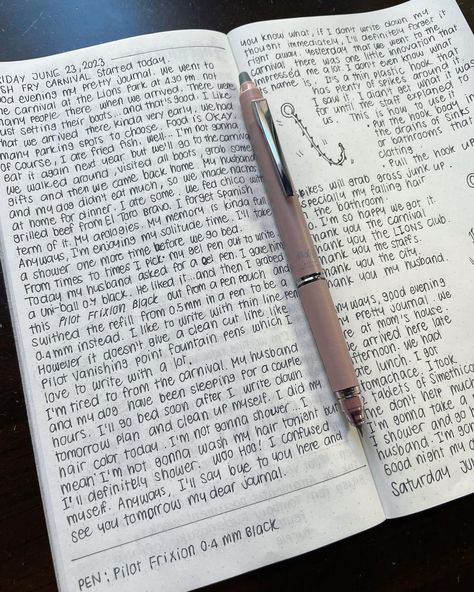 FRIDAY JUNE 23, 2023
FISH FRY CARNIVAL started today.
Good evening my pretty journal. We went to
the carnival at the Lions Park at 4:30 pm. not
many people there when we arrived. There were
just setting their boots... And that's good. I like
that we arrived there kinda very early, we had
many parking spots to choose. Food is OKAY
of course, I ate fried fish. Well... I'm not gonna
eat it again next year but we'll go to the carnival
we walked around, visited all boots, grab some
gifts and then we came back home. My husband
and my dog didn't eat much, so we made nachos
at home for dinner. I ate some. We fed chico with
grilled beef from El Toro Brand. I forget Spanish
term of it. My apologies. My memory is kinda full
Anyways, I'm enjoying my solitude time. I'll take
a shower one more time before we go bed.
From times to times I pick my gel pen out to write
Today my husband asked for a gel pen. I gave him
a uni-ball 0.7 black. He liked it... and then I grabbed
this Pilot Frixion Black out from a pen pouch and
swithed the refill from 0.5mm in a pen to be a
0.4 mm instead. I like to write with thin line pen
However it doesn't give a clean cut line like
Pilot Vanishing point fountain pens which I
love to write with a lot.
I'm tired from the carnival. My husband
and my dog have been sleeping for a couple
hours. I'll go bed soon after I write down
tomorrow plan and clean up myself. I did my
hair color today. I'm not gonna shower. I
mean I'm not gonna wash my hair tonight but
I'll definitely shower. Woo Hoo! I confused
myself. Anyways, I'll say bye to you here and
see you tomorrow my dear journal.
PEN: Pilot Frixion 0.4 mm Black
you know what, if I don't write down my
thought immediately, I'll definitely forget it
right away. Yesterday that we went to the
carnival, there was one little innovation that
impressed me a lot. I don't even know what
its name is. It's a thin plastic hook that
has plenty of spikes around it
I saw it. I didn't get what it was
for until the staff explained
us. This is how to use it.
Put the hook body
the drains of sinks
or bathrooms that
clotting.
Pull the hook up
spikes will grab gross junk up.
especially my falling hair
the bathroom.
I'm so happy we got it.
Thank you the carnival.
Thank you the LIONS club.
Thank you the staffs.
Thank you the city.
Thank you my husband.
Anyways, good evening
my pretty journal. We
are at mom's house.
We arrived here late
afternoon. We had
late lunch. I got
stomachache. I took
tablets of Simethicone
don't help much
I'm gonna take a
shower and go
husband. I'm gonna
Good night my
Saturday